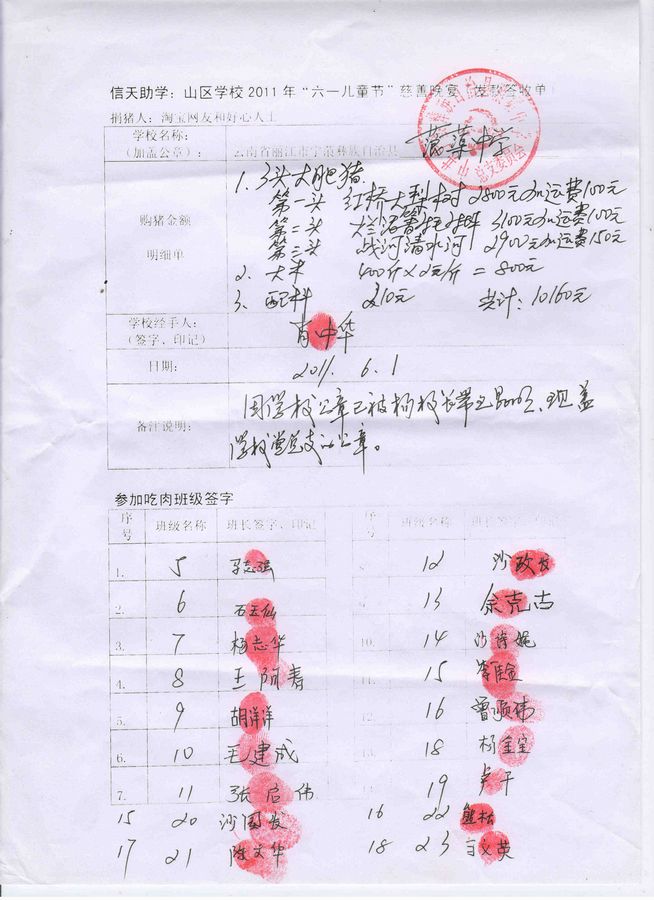 信天助学：山区学校2011年“六一儿童节”慈善晚宴（发款签收单）
捐猪人：淘宝网友和好心人士
学校名称：
（加盖公章）：
云南省丽江市宁蒗彝族自治县 中学
总支委员会
购猪金额
明细单
1. 3头大肥猪
第一头 红桥大梨村 2800元加运费100元
第二头 3100元加运费100元
第三头 战河清水河 2900元加运费150元
2. 大米 400斤×2元/斤 = 800元
3. 配料 210元 共计：10160元
学校经手人：
（签字、印记）
肖中华
日期：
2011. 6. 1
备注说明：
因学校公章已被杨校长带去昆明，现盖
学校党总支的公章。
参加吃肉班级签字
序号 班级名称 班长签字、印记 序号 班级名称 班长签字、印记
1. 5 马志强 8. 12 沙政
2. 6 石玉仙 9. 13 余克古
3. 7 杨志华 10. 14 沙
4. 8 王阿寿 11. 15 李佳金
5. 9 胡洋洋 12. 16 曾顺伟
6. 10 毛建成 13. 18 杨金宝
7. 11 张启伟 14. 19 卢干
15 20 沙国发 16 22 熊松
17 21 陈文华 18 23 文英